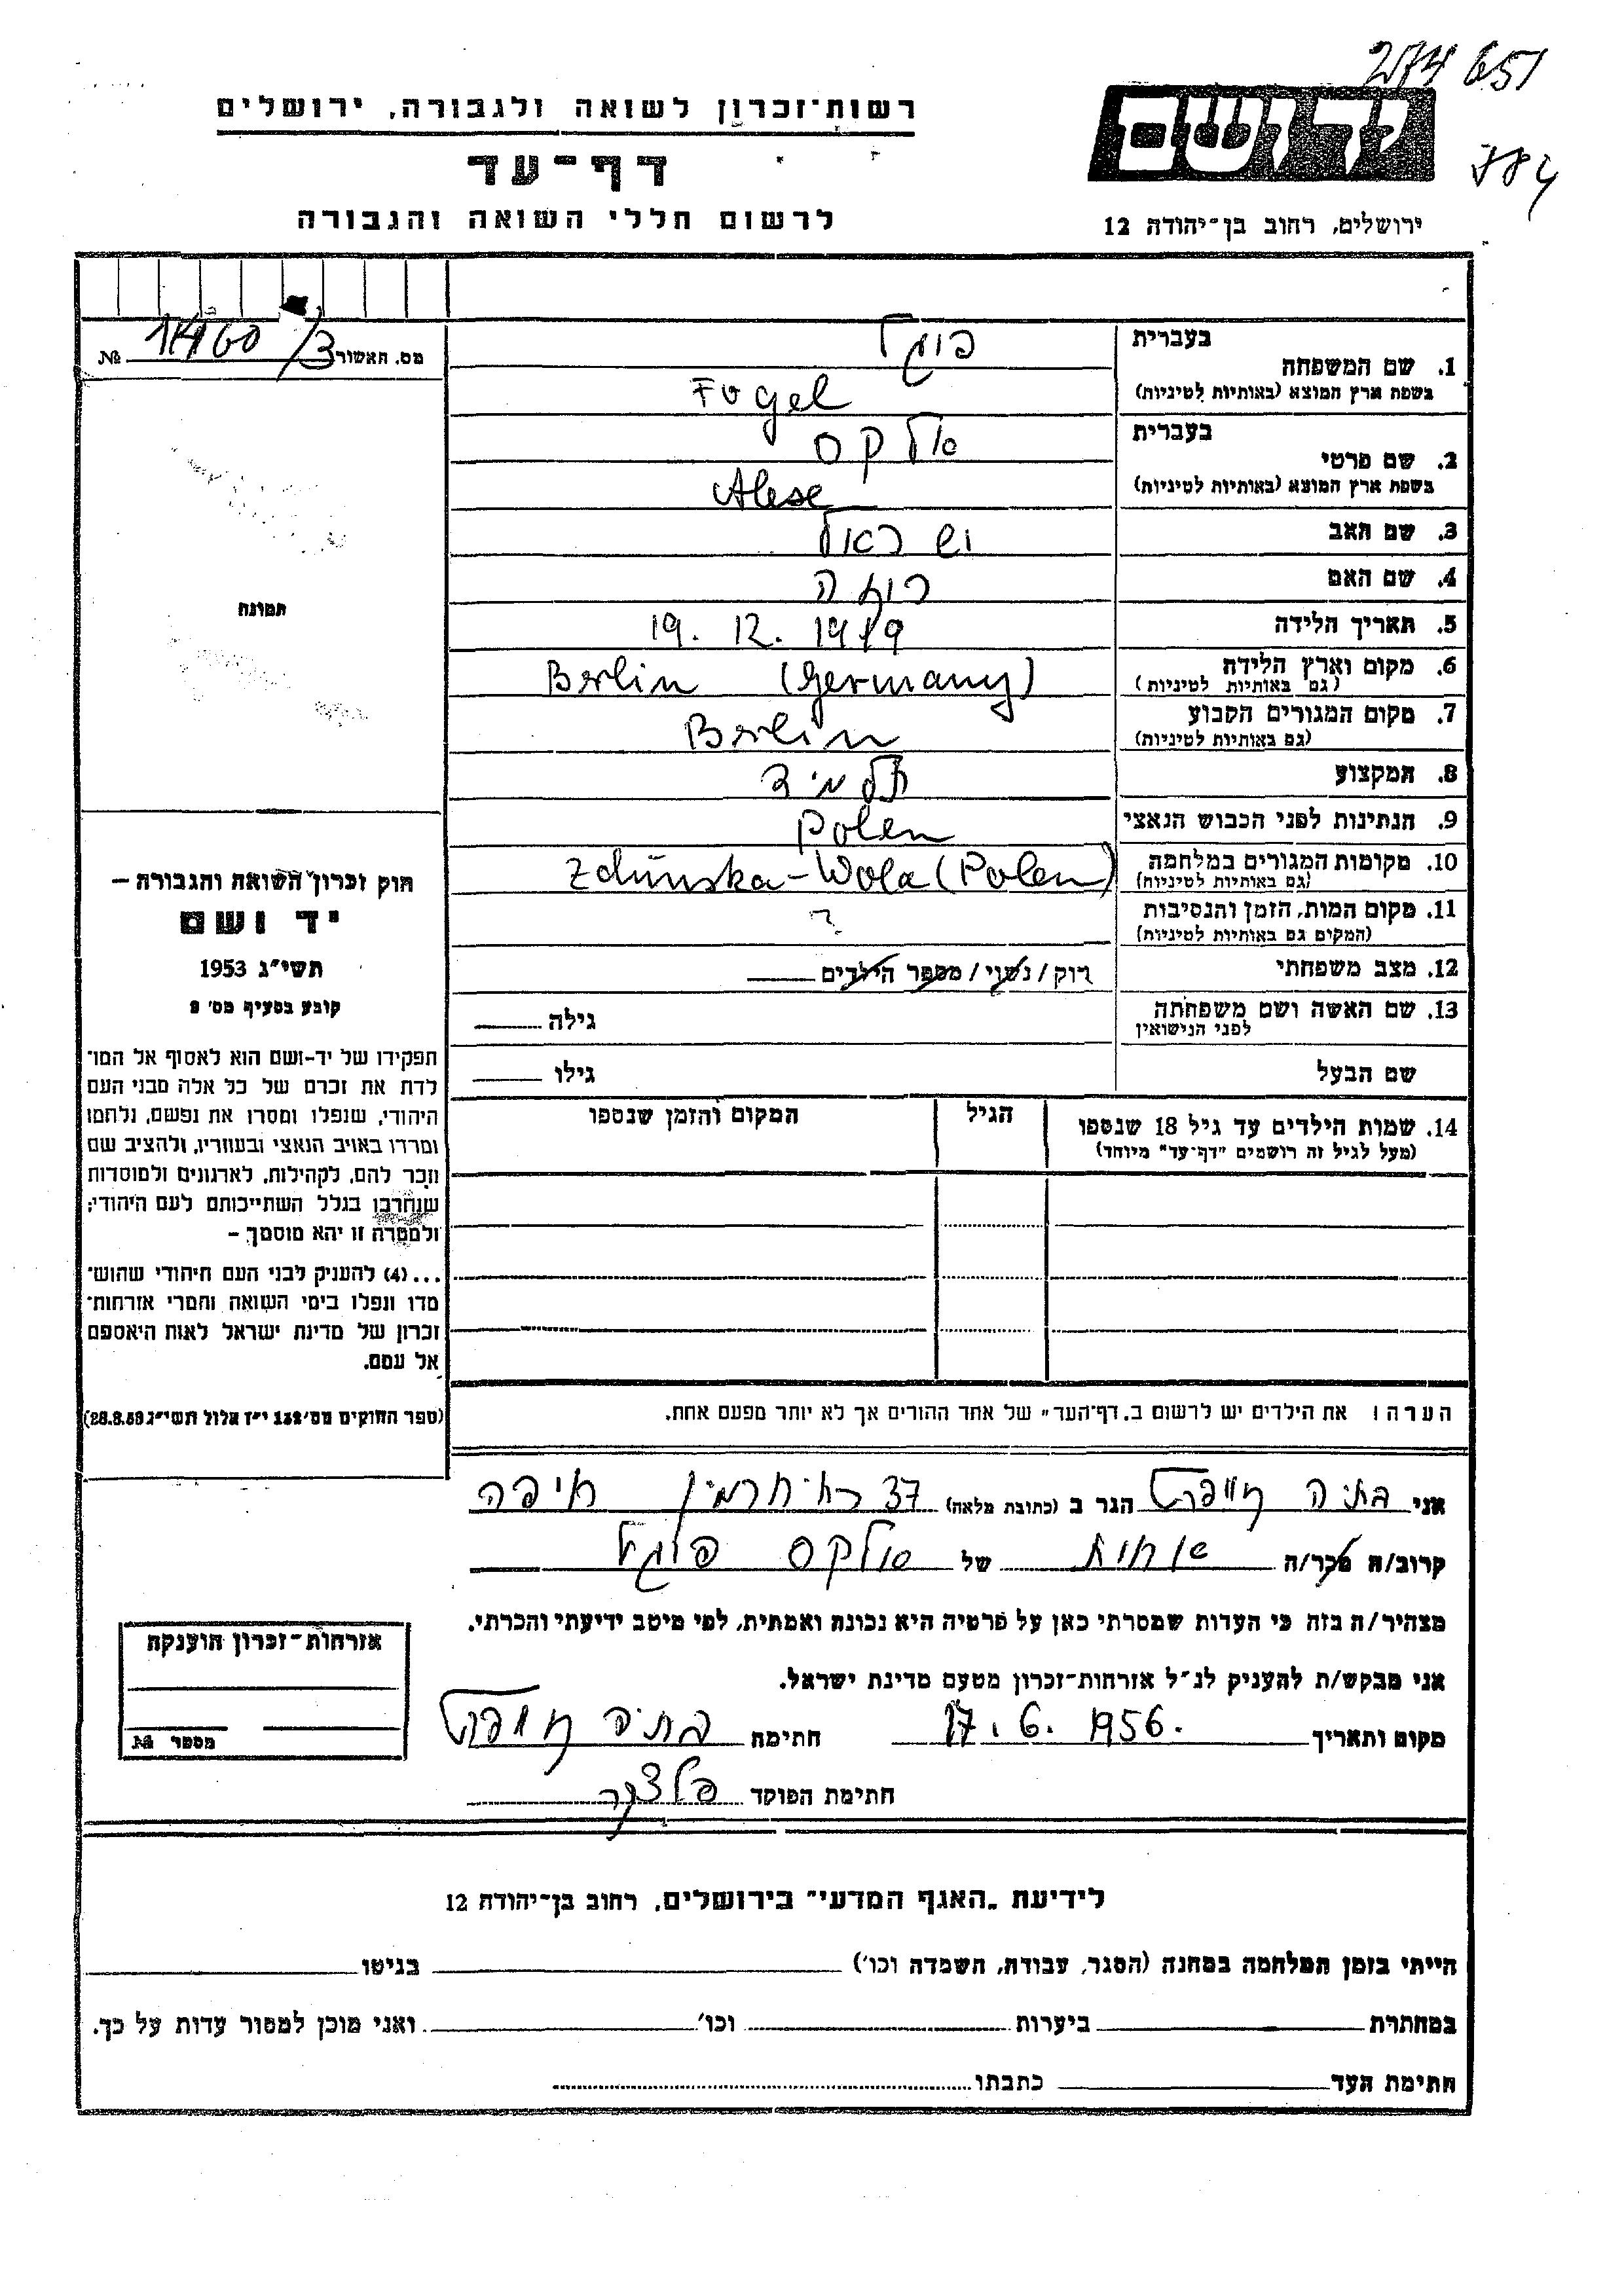 274 651
784
יד ושם
ירושלים, רחוב בן-יהודה 12
רשות-זכרון לשואה ולגבורה, ירושלים
דף-עד
לרשום חללי השואה והגבורה
מס. האשור 14160/3 №
תמונה
בעברית
1. שם המשפחה פוגל
בשפת ארץ המוצא (באותיות לטיניות) Fogel
בעברית
2. שם פרטי אלקס
בשפת ארץ המוצא (באותיות לטיניות)
3. שם האב ישראל
4. שם האם
5. תאריך הלידה 19. 12. 1919
6. מקום וארץ הלידה Berlin (Germany)
(גם באותיות לטיניות)
7. מקום המגורים הקבוע Berlin
(גם באותיות לטיניות)
8. המקצוע תלמיד
9. הנתינות לפני הכבוש הנאצי Polen
10. מקומות המגורים במלחמה Zdunska-Wola (Polen)
(גם באותיות לטיניות)
11. מקום המות, הזמן והנסיבות ?
(המקום גם באותיות לטיניות)
12. מצב משפחתי רוק/נשוי/מספר הילדים
13. שם האשה ושם משפחתה גילה
לפני הנישואין
שם הבעל גילו
14. שמות הילדים עד גיל 18 שנספו הגיל המקום והזמן שנספו
(מעל לגיל זה רושמים "דף-עד" מיוחד)
הערה: את הילדים יש לרשום ב"דף-העד" של אחד ההורים אך לא יותר מפעם אחת.
חוק זכרון השואה והגבורה –
יד ושם
תשי"ג 1953
קובע בסעיף מס' 2
תפקידו של יד-ושם הוא לאסוף אל המו־
לדת את זכרם של כל אלה מבני העם
היהודי, שנפלו ומסרו את נפשם, נלחמו
ומרדו באויב הנאצי ובעוזריו, ולהציב שם
וזכר להם, לקהילות, לארגונים ולמוסדות
שנחרבו בגלל השתייכותם לעם היהודי;
ולמטרה זו יהא מוסמך –
...(4) להעניק לבני העם היהודי שהוש־
מדו ונפלו בימי השואה והמרי אזרחות־
זכרון של מדינת ישראל לאות היאספם
אל עמם.
(ספר החוקים מס' 132 י"ז אלול תשי"ג 28.8.53)
אני בתיה הגר ב (כתובת מלאה) 37 חיפה
קרוב/ה מכר/ה אחות של אלקס פוגל
מצהיר/ה בזה כי העדות שמסרתי כאן על פרטיה היא נכונה ואמתית, לפי מיטב ידיעתי והכרתי.
אני מבקש/ת להעניק לנ"ל אזרחות-זכרון מטעם מדינת ישראל.
מקום ותאריך 17. 6. 1956. חתימה בתיה
חתימת הפוקד
אזרחות-זכרון הוענקה
מספר №
לידיעת "האגף המדעי" בירושלים, רחוב בן-יהודה 12
הייתי בזמן המלחמה במחנה (הסגר, עבודה, השמדה וכו') בגיטו
במחתרת ביערות וכו' ואני מוכן למסור עדות על כך.
חתימת העד כתבתו